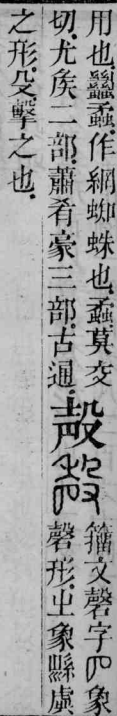 用也。䘎蟊。作網蜘蛛也。蟊莫交
切。尤侯二部。蕭肴豪三部。古通。
殸
籀文磬字。𠕒象
磬形。㞢象縣虡
之形。殳擊之也。